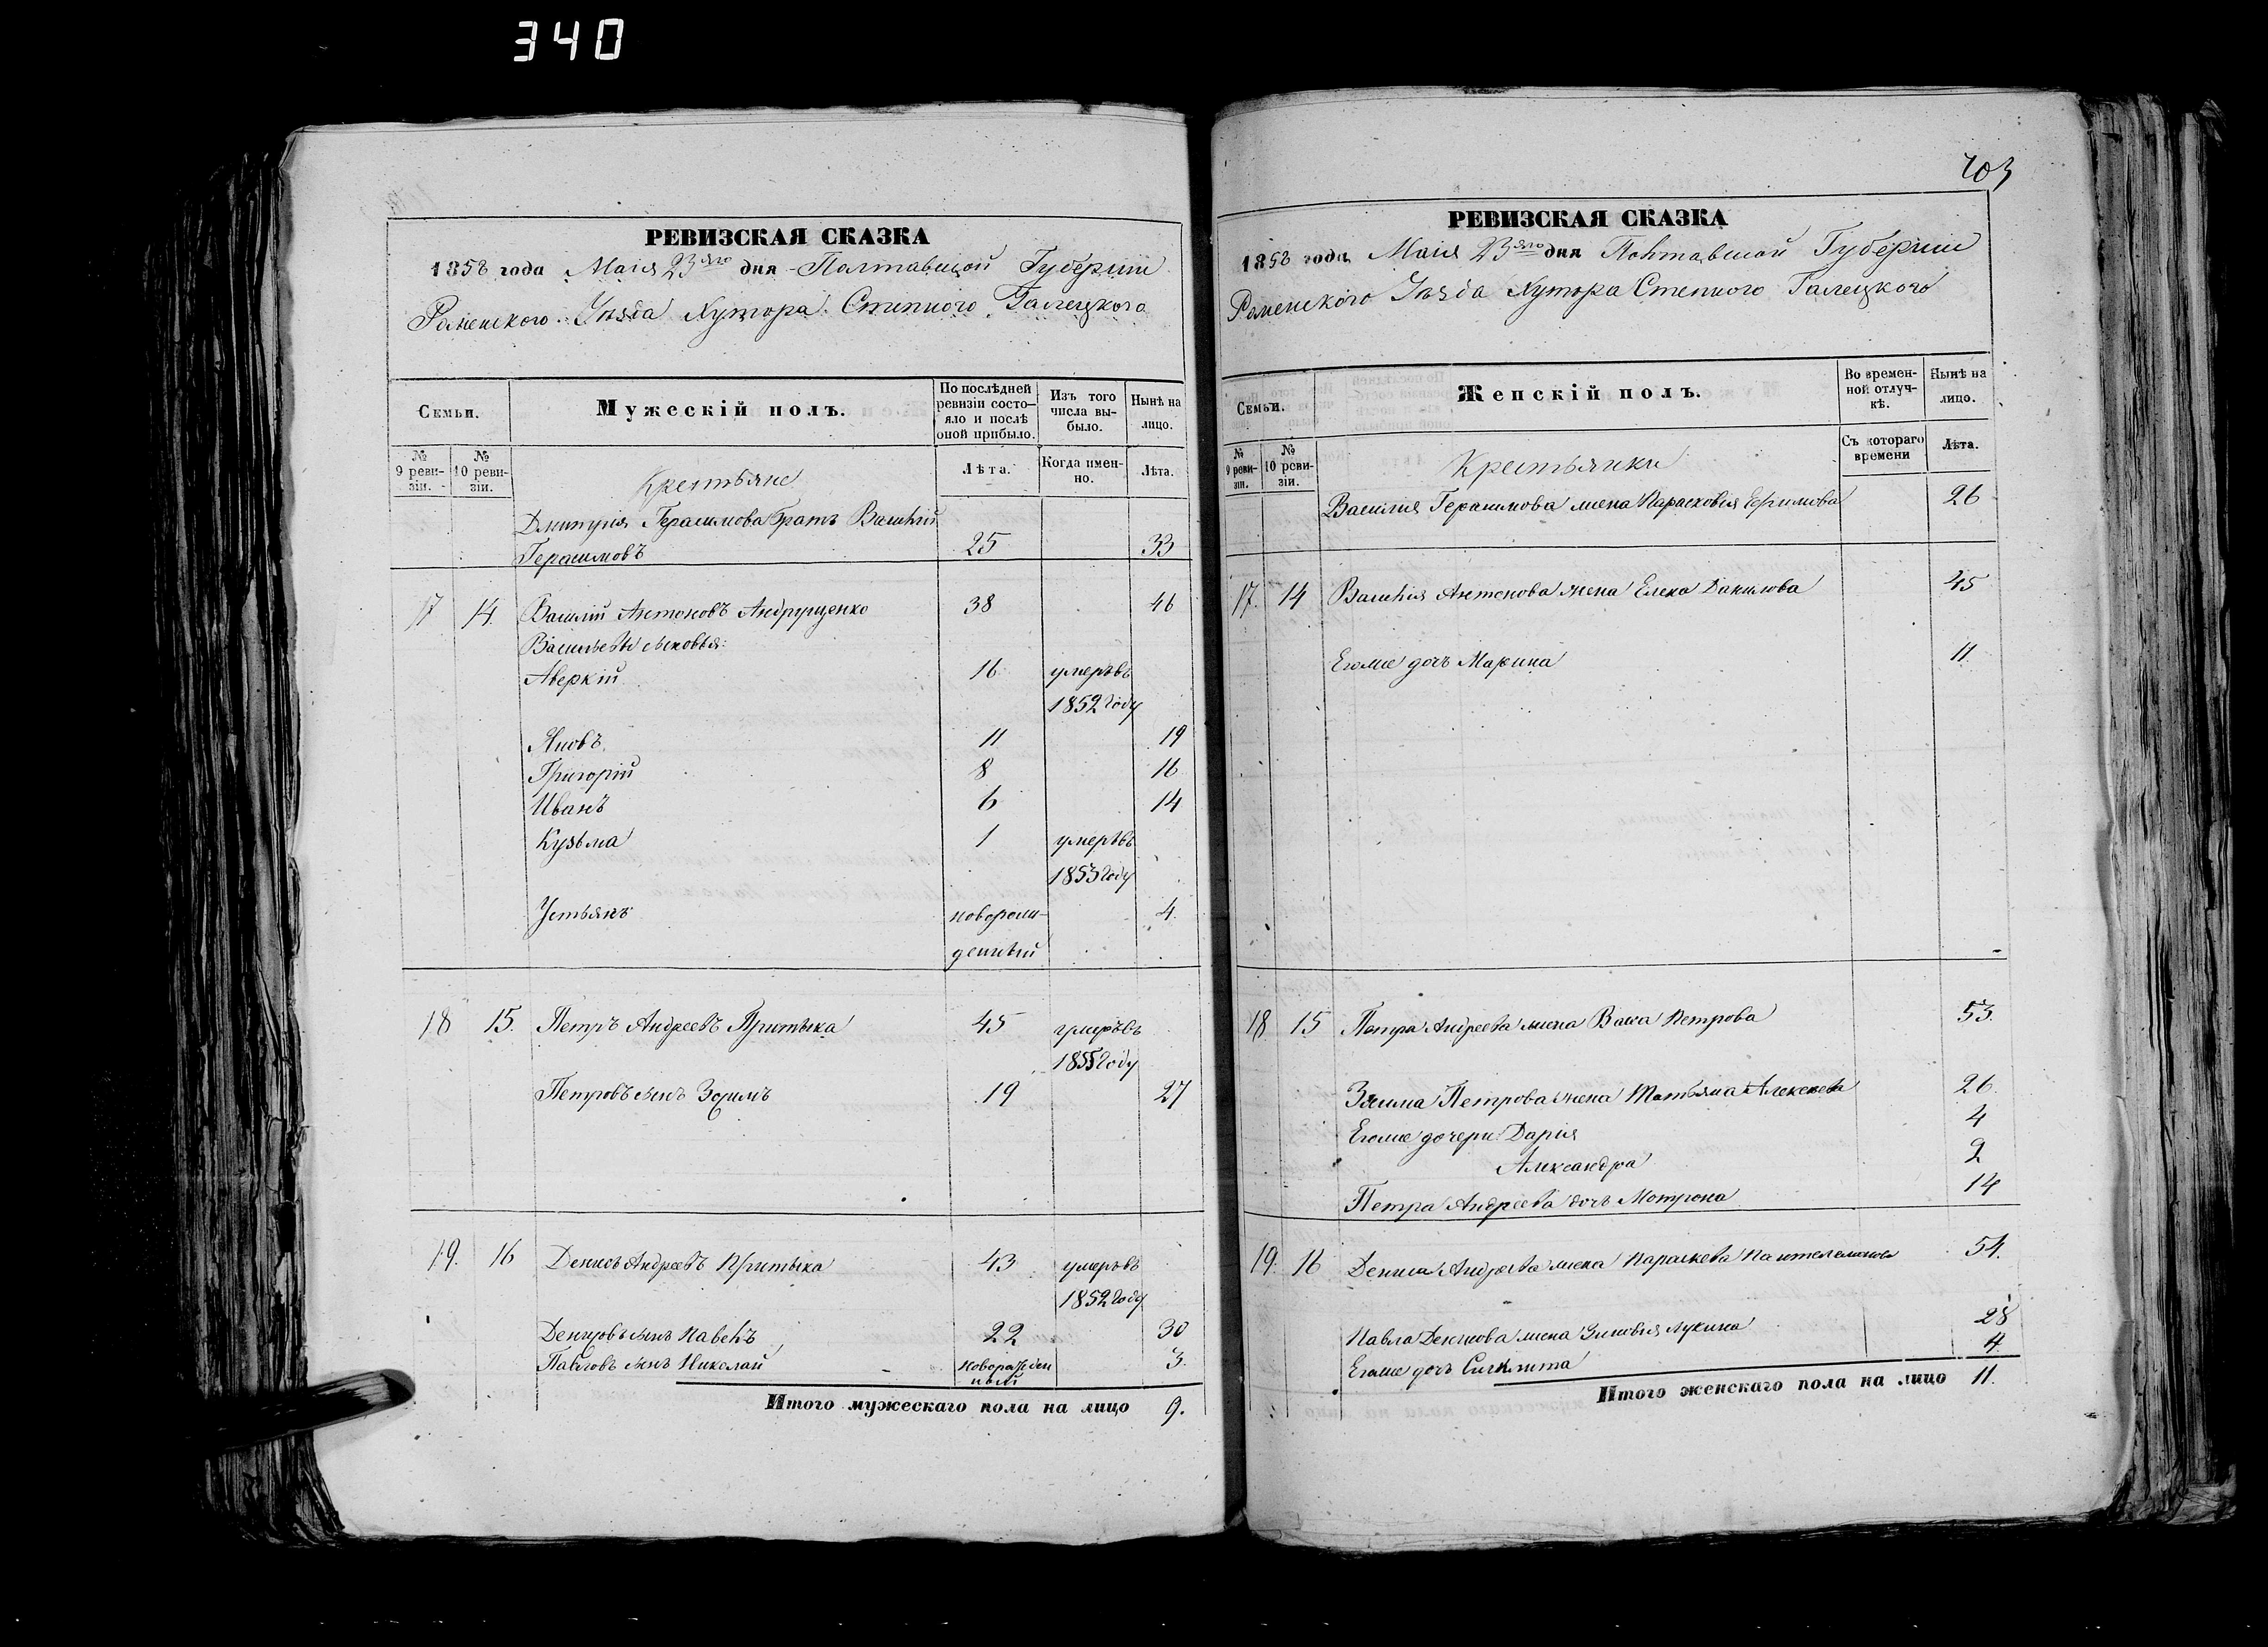 340
РЕВИЗСКАЯ СКАЗКА
1858 года Маія 23го дня Полтавской Губерніи
Роменского Уѣзда Хутора Степного Галецкого
Семьи.
Мужескій полъ.
По послѣдней ревизіи состо-яло и послѣ оной прибыло.
Изъ того числа вы-было.
Нынѣ на лицо.
№ 9 реви-зіи.
№ 10 реви-зіи.
Крестьяне
Лѣта.
Когда имен-но.
Лѣта.
Дмитрія Герасимова братъ Василій
Герасимовъ 25 33
17 14. Василій Антоновъ Андрущенко 38 46
Васильевы сыновья:
Аверкій 16 умеръ въ
1852 году
Яковъ 11 19
Григорій 8 16
Иванъ 6 14
Кузьма 1 умеръ въ
1853 году
Устьянъ новорож- 4.
денный
18 15. Петръ Андреевъ Притыка 45 умеръ въ
1855 году
Петровъ сынъ Зосимъ 19 27
19. 16 Денисъ Андреевъ Притыка 43 умеръ въ
1852 году
Денисовъ сынъ Павелъ 22 30
Павловъ сынъ Николай новорожден 3.
ный
Итого мужескаго пола на лицо 9.
703
РЕВИЗСКАЯ СКАЗКА
1858 года Маія 23го дня Полтавской Губерніи
Роменского Уѣзда Хутора Степного Галецкого
Семьи.
Женскій полъ.
Во времен-ной отлуч-кѣ.
Нынѣ на лицо.
№ 9 реви-зіи.
№ 10 реви-зіи.
Крестьянки
Съ котораго времени
Лѣта.
Василія Герасимова жена Парасковія Ефимова 26
17. 14 Василія Антонова жена Елена Данилова 45
Егоже дочь Марина 11
18 15 Петра Андреева жена Васа Петрова 53.
Зосима Петрова жена Татьяна Алексеева 26
Егоже дочери Дарія 4
Александра 2
Петра Андреева дочь Мотрона 14
19. 16 Дениса Андреева жена Параскева Пантелемонова 54.
Павла Денисова жена Зиновія Лукина 28
Егоже дочь 4
Итого женскаго пола на лицо 11.